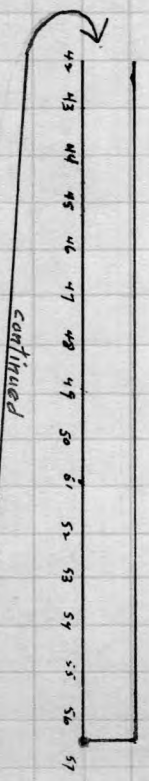 42 43 44 45 46 47 48 49 50 51 52 53 54 55 56 57
continued